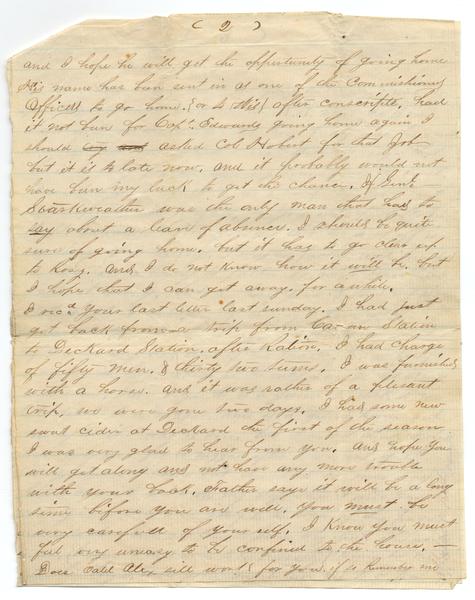 ( 2 )
and I hope he will get the oppertunity of going home
His name has ben sent in as one of the Commishioned
Officers to go home. (or to Wis) after conscripts. had
it not ben for Capt. Edwards going home again I
should asked Col Hobert for that Job
but it is to late now. and it probably would not
have ben my luck to get the chance. If Genl
Starkweather was the only man that has to
say about a leave of absence. I should be quite
sure of going home. but it has to go clear up
to Rosy. and I do not know how it will be. but
I hope that I can get away. for a while.
I recd your last letter last sunday. I had just
got back from a trip from Station
to Deckard Station. after Rations. I had charge
of fifty men. & thirty two teams. I was furnished
with a horse. and it was rather of a plesant
trip. we were gone two days. I had some new
sweet cider at Deckard the first of the season
I was very glad to hear from you. and hope you
will get along and not have any more trouble
with your back. Father says it will be a long
time before you are well. you must be
very carefull of your self. I know you must
feel very uneasy to be confined to the house. —
Does Alex still work for you. if so Remember me